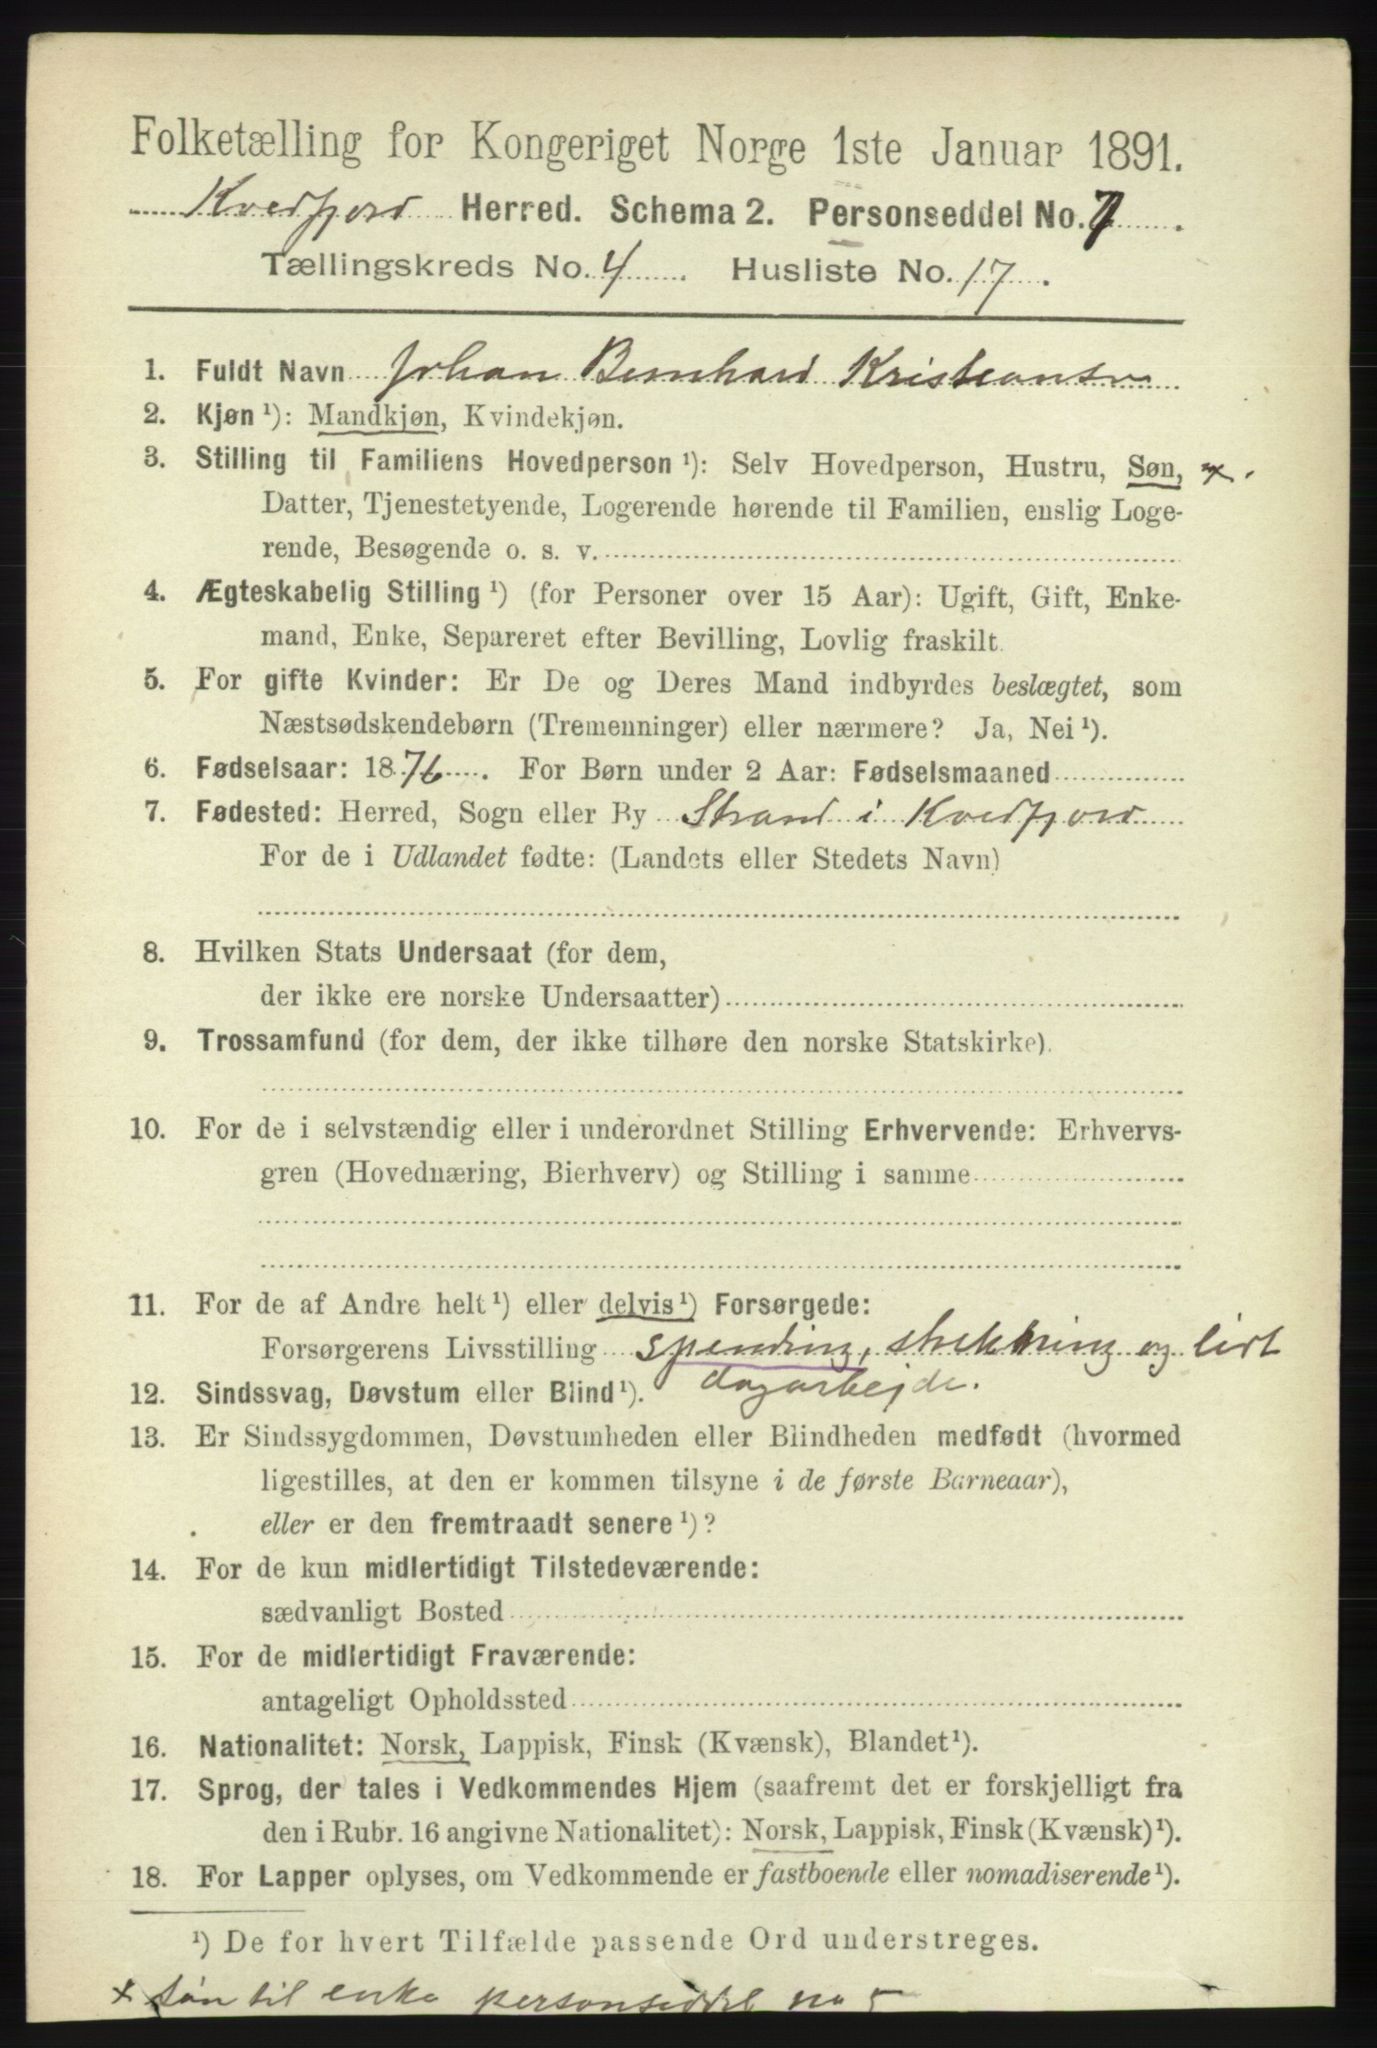 Folketælling for Kongeriget Norge 1ste Januar 1891.
Kvedfjord Herred. Schema 2. Personseddel No. 7.
Tællingskreds No. 4. Husliste No. 17.
1. Fuldt Navn Johan Bernhard Kristiansen
2. Kjøn ¹): Mandkjøn, Kvindekjøn.
3. Stilling til Familiens Hovedperson ¹): Selv Hovedperson, Hustru, Søn, x.
Datter, Tjenestetyende, Logerende hørende til Familien, enslig Loge-
rende, Besøgende o. s. v.
4. Ægteskabelig Stilling ¹) (for Personer over 15 Aar): Ugift, Gift, Enke-
mand, Enke, Separeret efter Bevilling, Lovlig fraskilt.
5. For gifte Kvinder: Er De og Deres Mand indbyrdes beslægtet, som
Næstsødskendebørn (Tremenninger) eller nærmere? Ja, Nei ¹).
6. Fødselsaar: 1876. For Børn under 2 Aar: Fødselsmaaned
7. Fødested: Herred, Sogn eller By Strand i Kvedfjord
For de i Udlandet fødte: (Landets eller Stedets Navn)
8. Hvilken Stats Undersaat (for dem,
der ikke ere norske Undersaatter)
9. Trossamfund (for dem, der ikke tilhøre den norske Statskirke).
10. For de i selvstændig eller i underordnet Stilling Erhvervende: Erhvervs-
gren (Hovednæring, Bierhverv) og Stilling i samme
11. For de af Andre helt ¹) eller delvis ¹) Forsørgede:
Forsørgerens Livsstilling spinding, strikkning og lidt
dagarbejde.
12. Sindssvag, Døvstum eller Blind ¹).
13. Er Sindssygdommen, Døvstumheden eller Blindheden medfødt (hvormed
ligestilles, at den er kommen tilsyne i de første Barneaar),
eller er den fremtraadt senere ¹)?
14. For de kun midlertidigt Tilstedeværende:
sædvanligt Bosted
15. For de midlertidigt Fraværende:
antageligt Opholdssted
16. Nationalitet: Norsk, Lappisk, Finsk (Kvænsk), Blandet ¹).
17. Sprog, der tales i Vedkommendes Hjem (saafremt det er forskjelligt fra
den i Rubr. 16 angivne Nationalitet): Norsk, Lappisk, Finsk (Kvænsk) ¹).
18. For Lapper oplyses, om Vedkommende er fastboende eller nomadiserende ¹).
¹) De for hvert Tilfælde passende Ord understreges.
x søn til enke personseddel no 5